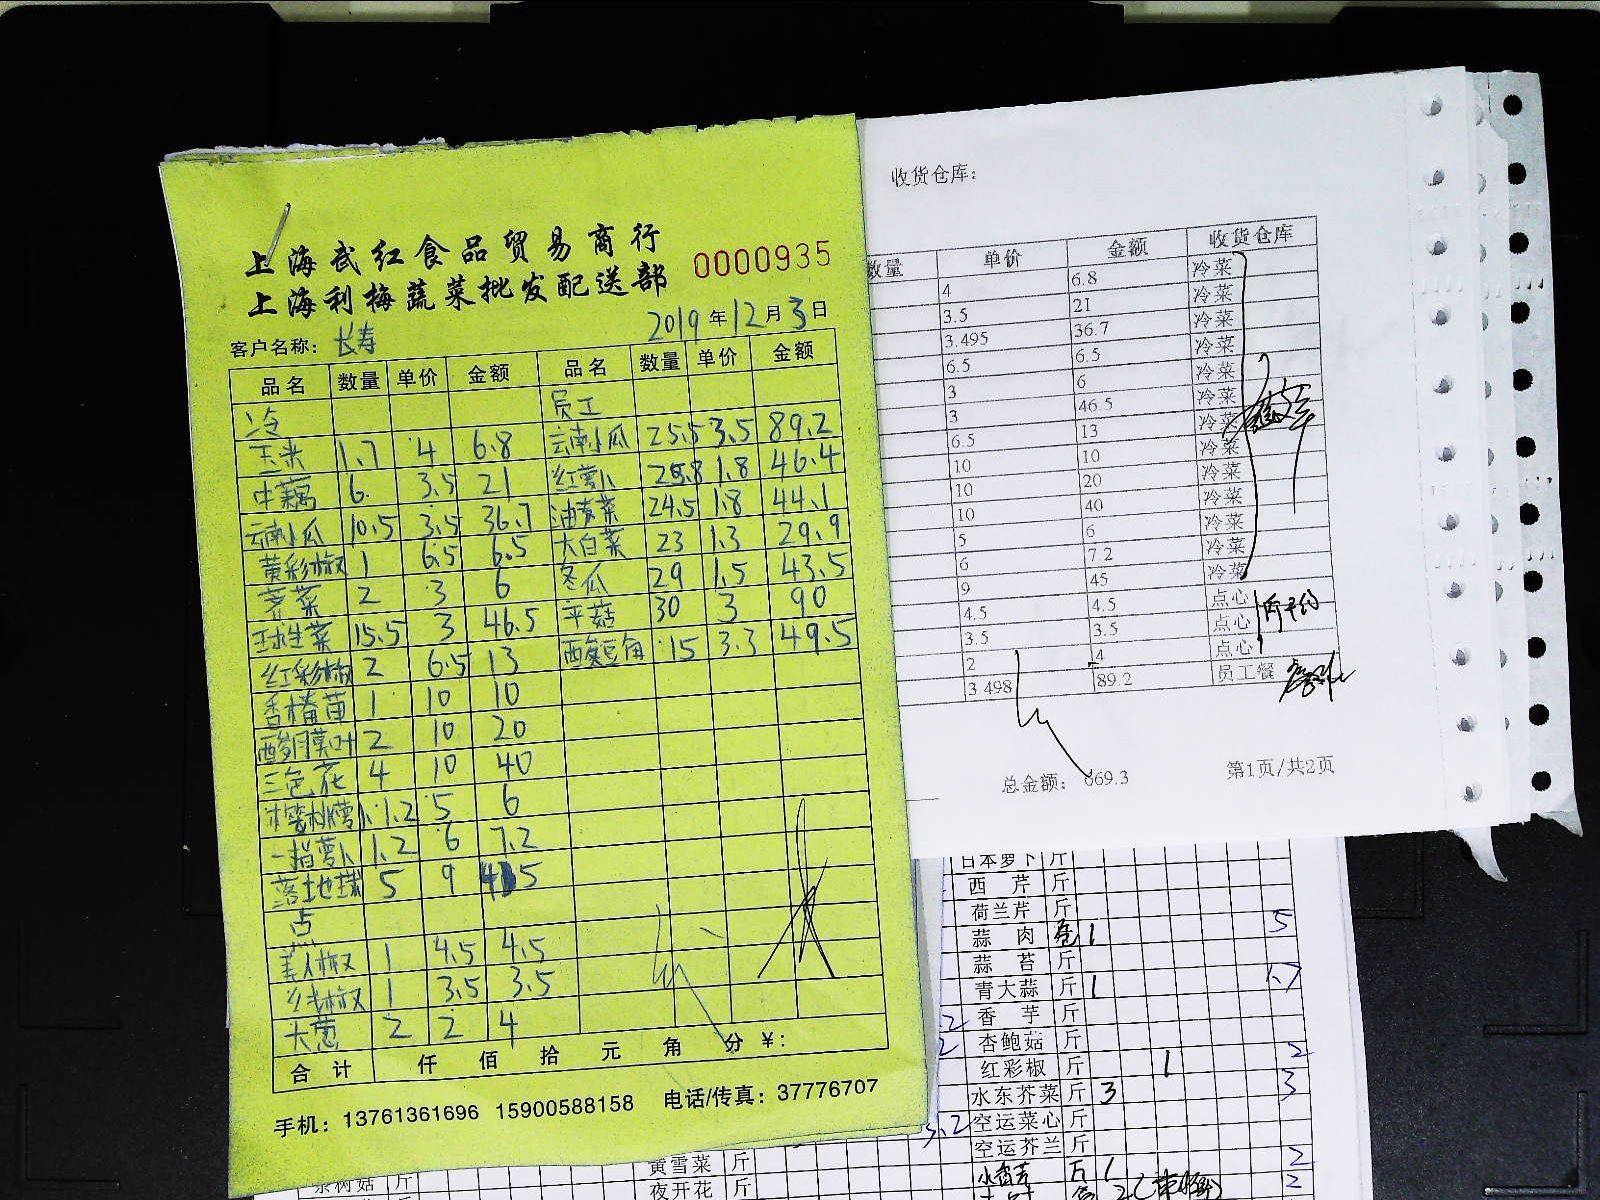 上海武红食品贸易商行
上海利梅蔬菜批发配送部
0000935
2019年12月3日
客户名称: 长寿
品名 数量 单价 金额 品名 数量 单价 金额
冷 员工
玉米 1.7 4 6.8 云南小瓜 25.5 3.5 89.2
中藕 6. 3.5 21 红萝卜 25.8 1.8 46.4
云南小瓜 10.5 3.5 36.7 油麦菜 24.5 1.8 44.1
黄彩椒 1 6.5 6.5 大白菜 23 1.3 29.9
荠菜 2 3 6 冬瓜 29 1.5 43.5
球生菜 15.5 3 46.5 平菇 30 3 90
红彩椒 2 6.5 13 酸豆角 15 3.3 49.5
香椿苗 1 10 10
酸模叶 2 10 20
三色花 4 10 40
1.2 5 6
一指萝卜 1.2 6 7.2
落地球 5 9 45
点
美人椒 1 4.5 4.5
线椒 1 3.5 3.5
大葱 2 2 4
合计 仟 佰 拾 元 角 分 ¥:
手机: 13761361696 15900588158 电话/传真: 37776707
收货仓库:
数量 单价 金额 收货仓库
4 6.8 冷菜
3.5 21 冷菜
3.495 36.7 冷菜
6.5 6.5 冷菜
3 6 冷菜
3 46.5 冷菜
6.5 13 冷菜
10 10 冷菜
10 20 冷菜
10 40 冷菜
5 6 冷菜
6 7.2 冷菜
9 45 冷菜
4.5 4.5 点心
3.5 3.5 点心
2 4 点心
3.498 89.2 员工餐
总金额: 669.3
第1页/共2页
日本萝卜 斤
西芹 斤
荷兰芹 斤 5
蒜肉 包 1
蒜苔 斤
青大蒜 斤 1 1.7
香芋 斤
杏鲍菇 斤
红彩椒 斤 1 2
水东芥菜 斤 3 3
空运菜心 斤
空运芥兰 斤
2
黄雪菜 斤
茶树菇 斤
夜开花 斤
2